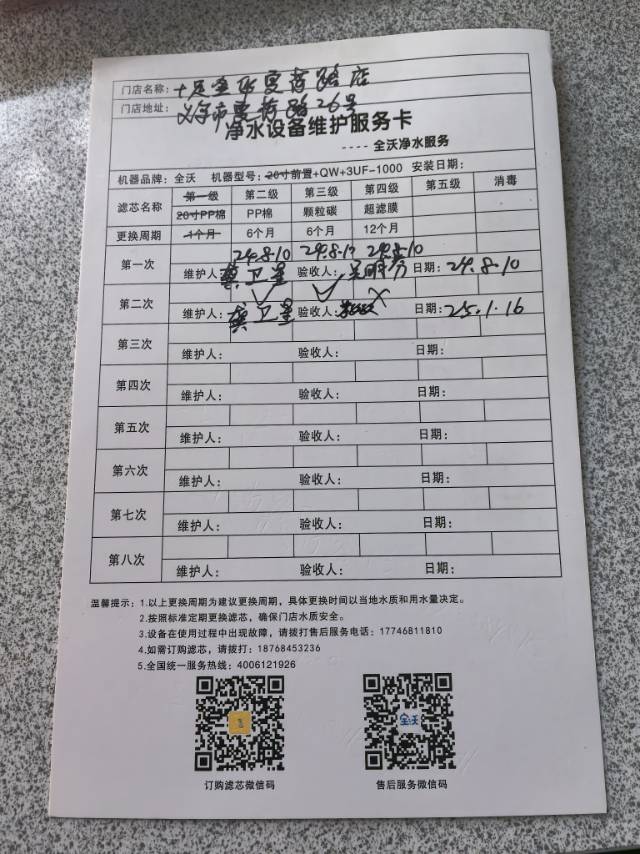 门店名称：十足金华宾王路店
门店地址：义乌市 路26号
净水设备维护服务卡
----全沃净水服务
机器品牌：全沃 机器型号：20寸前置+QW+3UF-1000 安装日期：
滤芯名称 第一级 第二级 第三级 第四级 第五级 消毒
20寸PP棉 PP棉 颗粒碳 超滤膜
更换周期 1个月 6个月 6个月 12个月
第一次 24.8.10 24.8.10 24.8.10
维护人：龚卫星 验收人： 日期：24.8.10
第二次 ✓ ✓ ✗
维护人：龚卫星 验收人： 日期：25.1.16
第三次
维护人： 验收人： 日期：
第四次
维护人： 验收人： 日期：
第五次
维护人： 验收人： 日期：
第六次
维护人： 验收人： 日期：
第七次
维护人： 验收人： 日期：
第八次
维护人： 验收人： 日期：
温馨提示：1.以上更换周期为建议更换周期，具体更换时间以当地水质和用水量决定。
2.按照标准定期更换滤芯，确保门店水质安全。
3.设备在使用过程中出现故障，请拨打售后服务电话：17746811810
4.如需订购滤芯，请拨打：18768453236
5.全国统一服务热线：4006121926
全沃
订购滤芯微信码 售后服务微信码